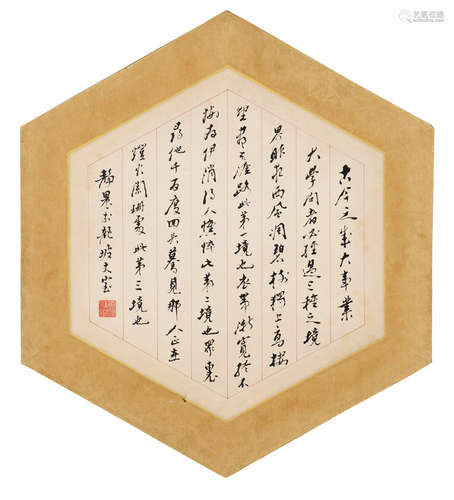 古今之成大事業
大學問者必經過三種之境
界昨夜西風凋碧樹獨上高樓
望盡天涯路此第一境也衣帶漸寬終不
悔為伊消得人憔悴此第二境也眾裏
尋他千百度回頭驀見那人正在
燈火闌珊處此第三境也
靜農於龍坡丈室
艺狐在线